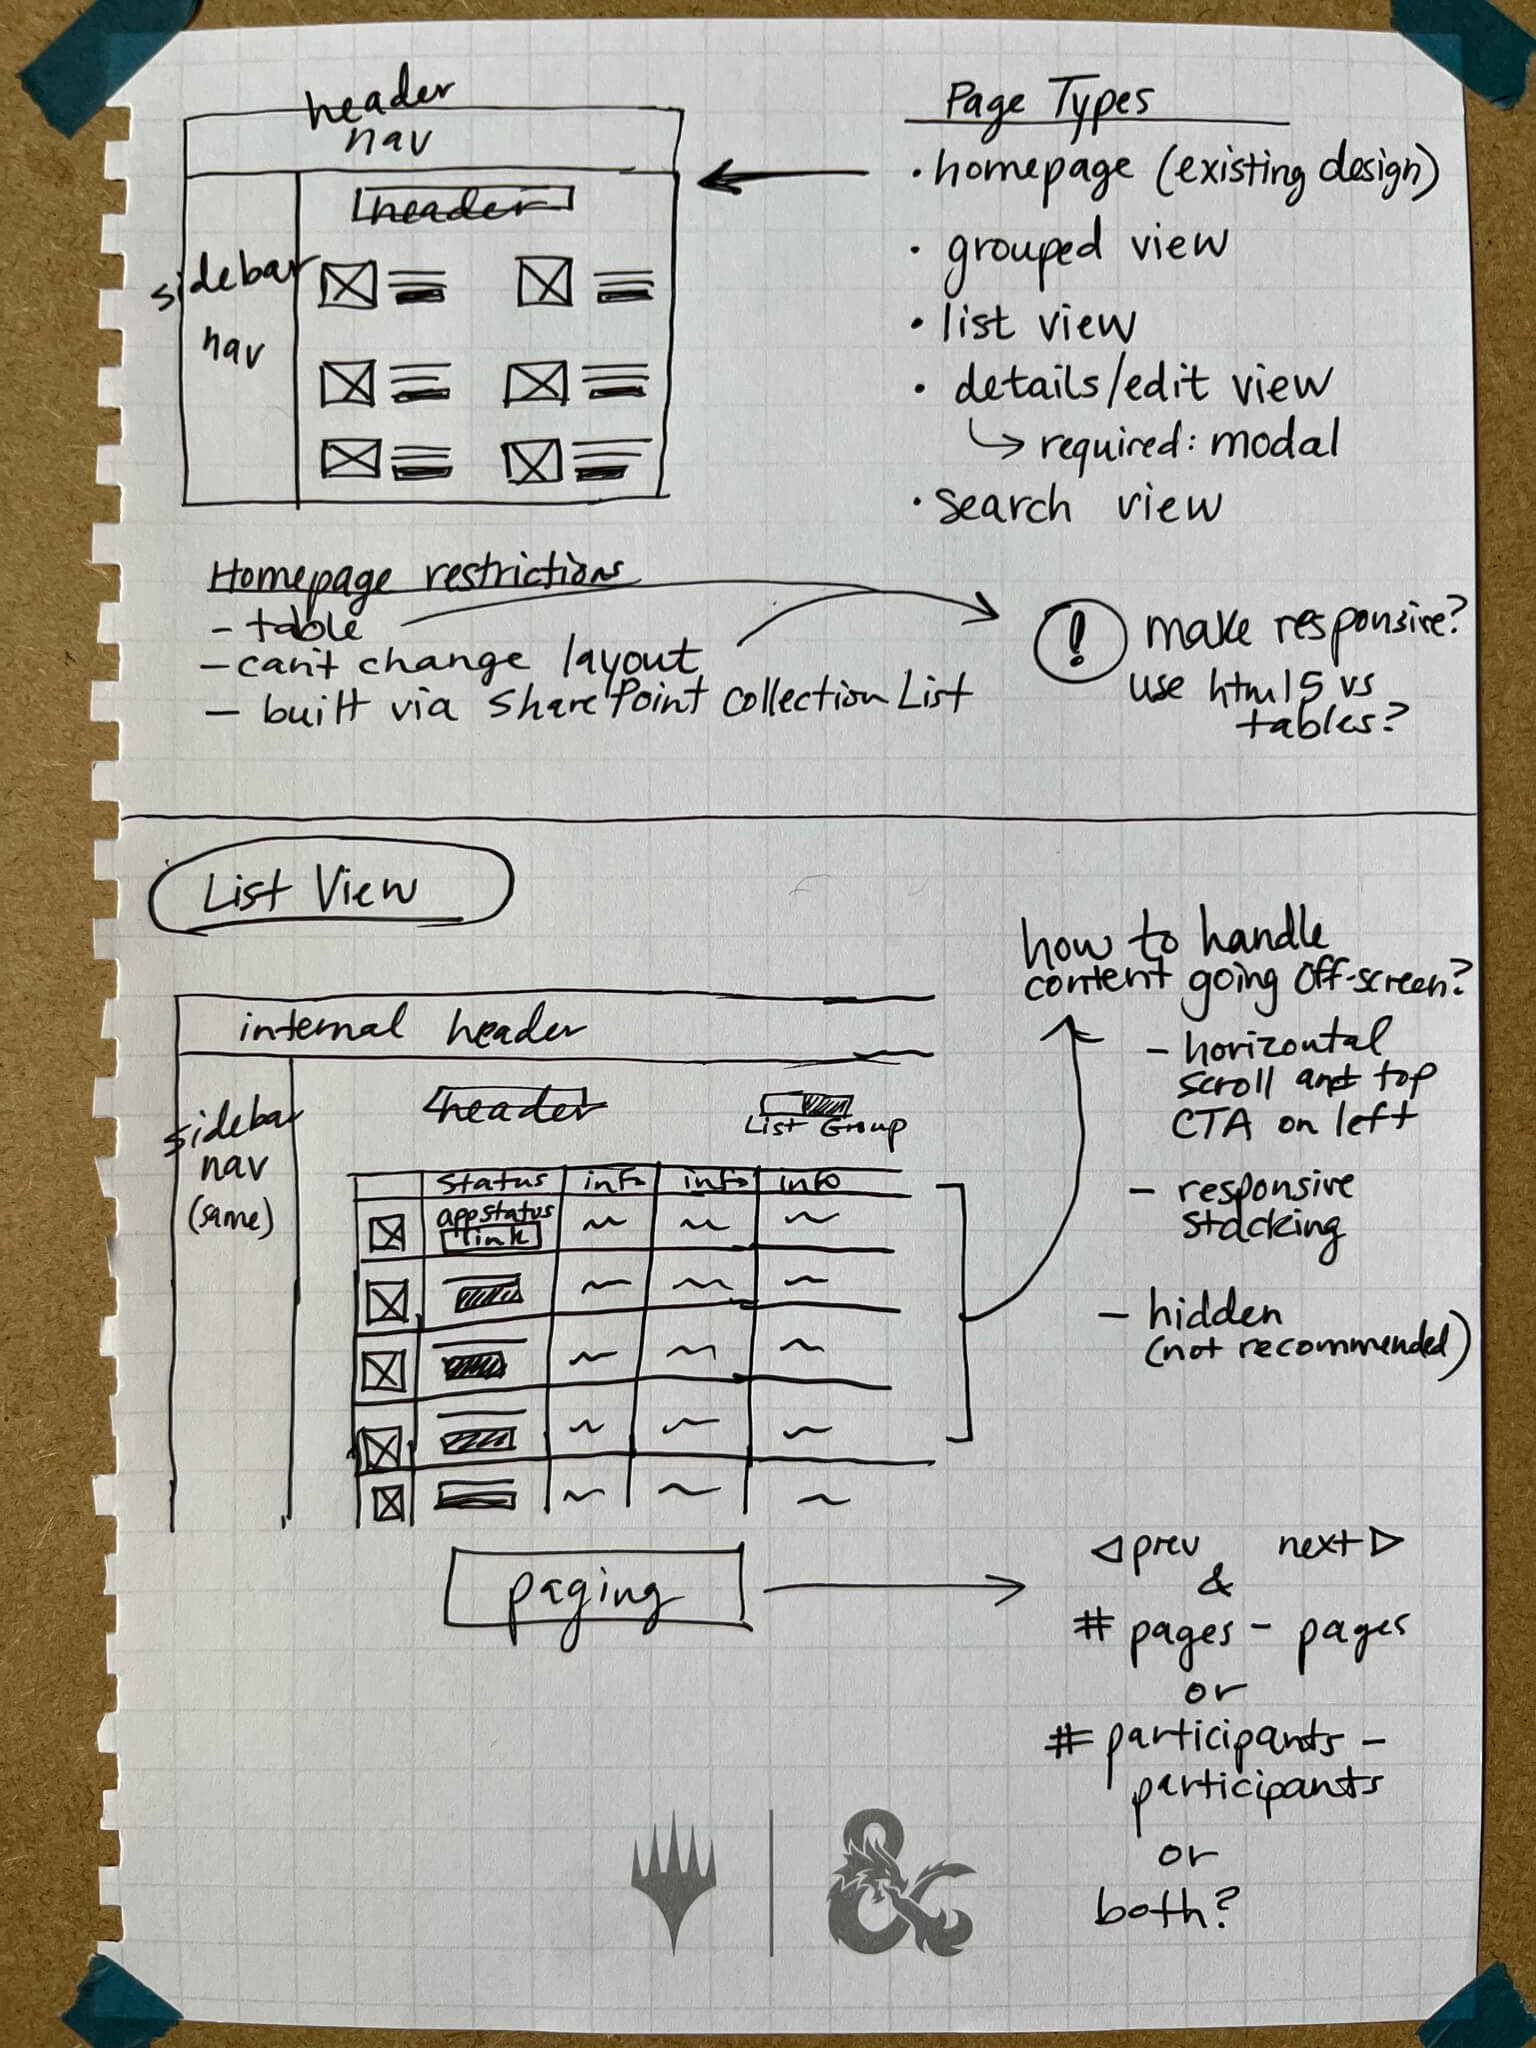 header
nav
header
sidebar
nav
Page Types
• homepage (existing design)
• grouped view
• list view
• details/edit view
↳ required: modal
• search view
Homepage restrictions
- table
- can't change layout
- built via SharePoint Collection List
! make responsive?
use html5 vs
tables?
List View
internal header
sidebar
nav
(same)
header
List Group
status info info info
app status
link
how to handle
content going off-screen?
- horizontal
scroll and top
CTA on left
- responsive
stacking
- hidden
(not recommended)
paging
◁ prev next ▷
&
# pages - pages
or
# participants -
participants
or
both?